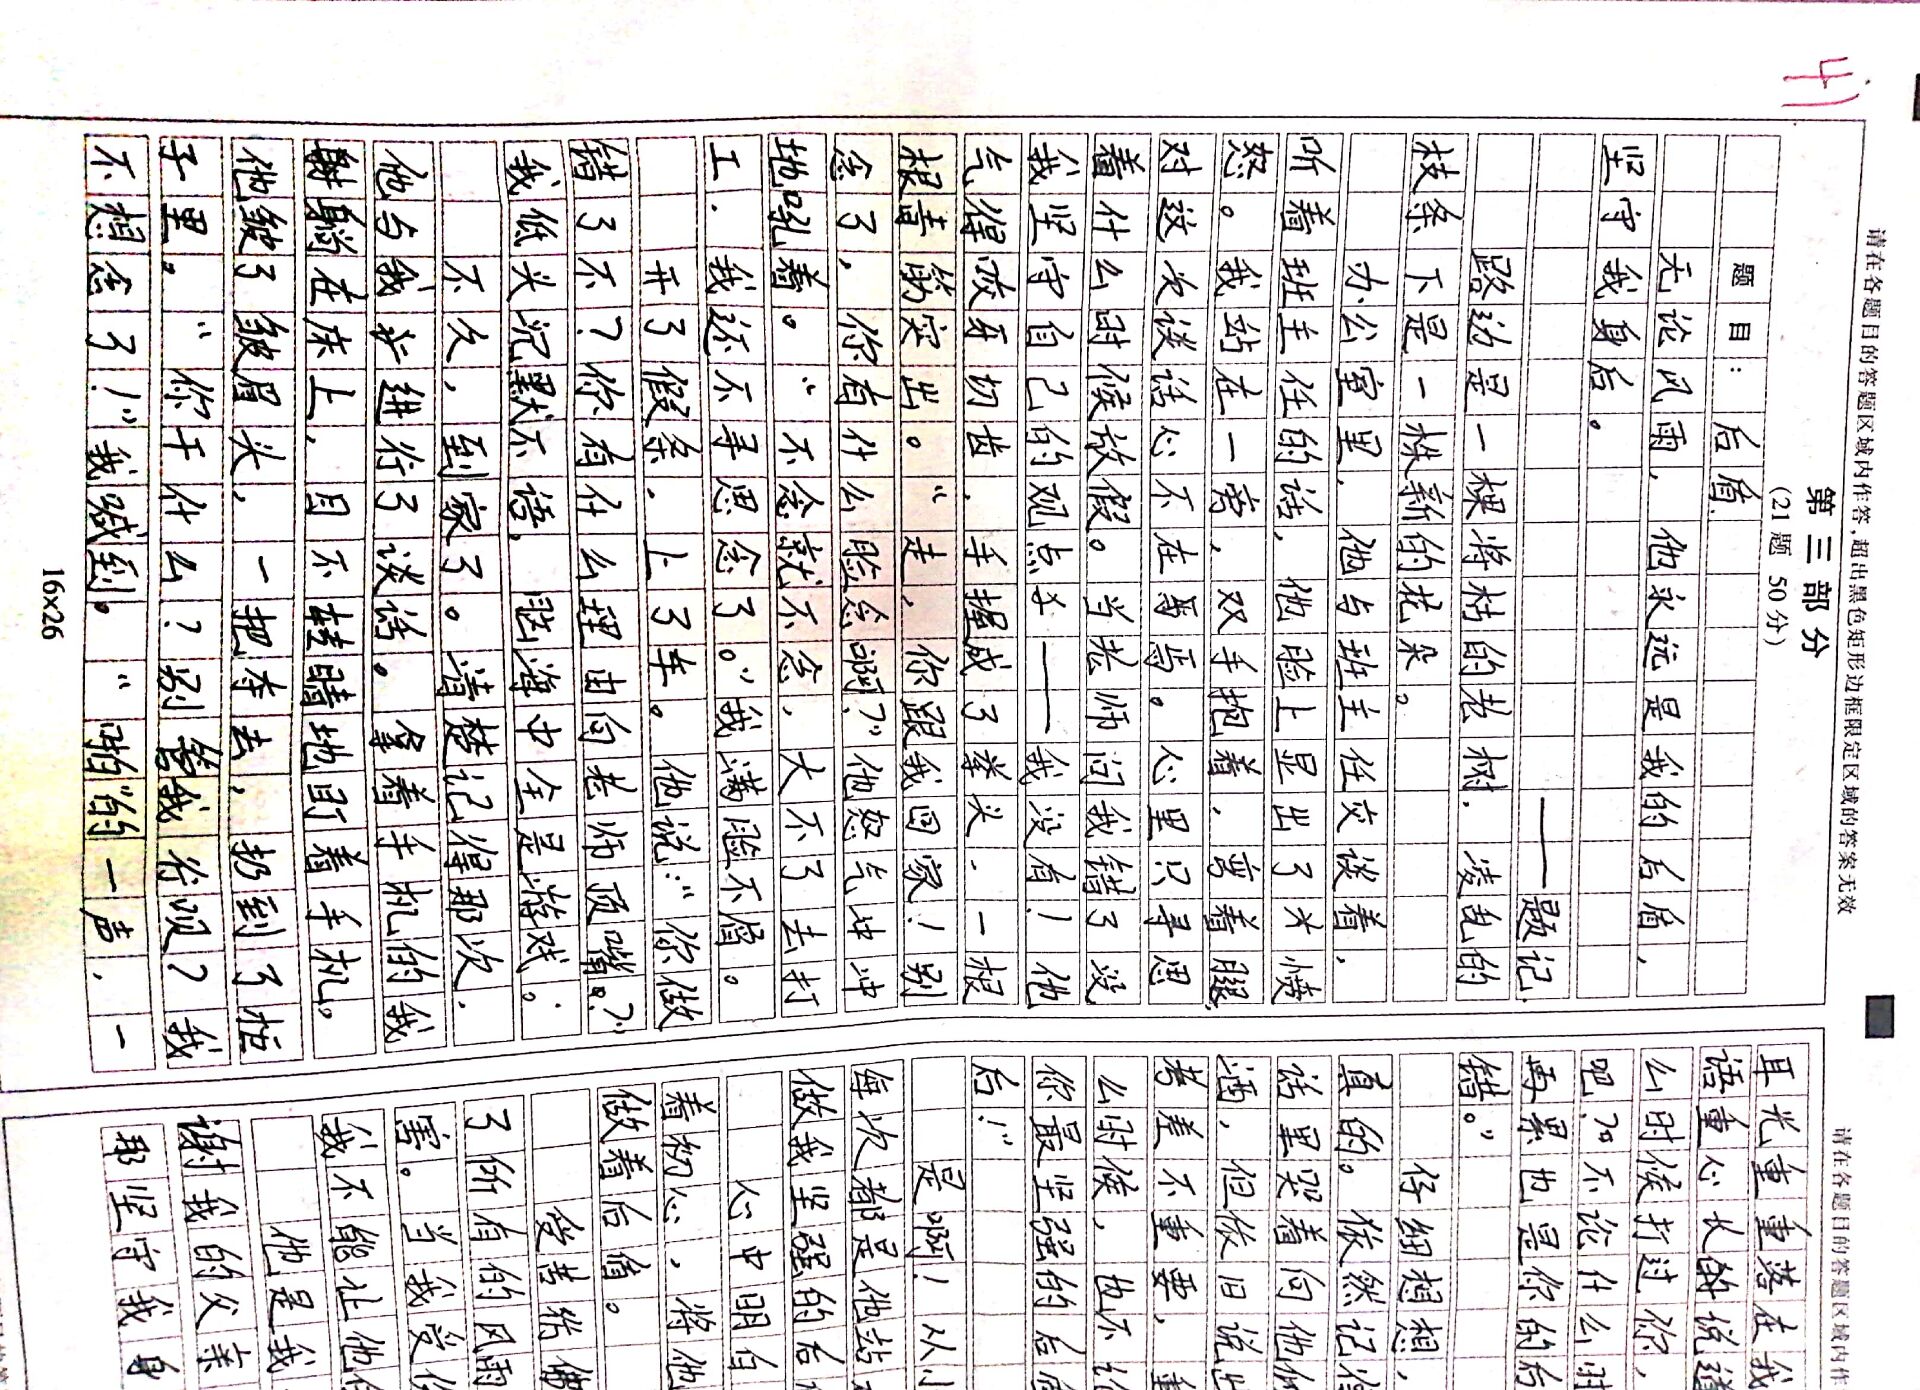 41
请在各题目的答题区域内作答,超出黑色矩形边框限定区域的答案无效
第三部分
(21题 50分)
题目：后盾
无论风雨，他永远是我的后盾，
坚守我身后。
——题记
路边是一棵将枯的老树，凌乱的
枝条下是一株新的花朵。
办公室里，他与班主任交谈着，
听着班主任的话，他脸上显出了大愤
怒。我站在一旁，双手抱着，弯着腿，
对这次谈话心不在焉。心里只寻思
着什么时候放假。当老师问我错了没
我坚守自己的观点——我没有！他
气得咬牙切齿，手握成了拳头，一根
根青筋突出。“走，你跟我回家！别
念了，你有什么脸念啊？”他怒气冲冲
地吼着。“不念就不念，大不了去打
工，我还不寻思念了。”我满脸不屑。
开了假条，上了车。他说：“你做
错了不？你有什么理由向老师顶嘴？”
我低头沉默不语，脑海中全是游戏。
不久，到家了。清楚记得那次，
他与我并进行了谈话。拿着手机的我
躺在床上，目不转睛地盯着手机。
他皱了皱眉头，一把夺去，扔到了柜
子里。“你干什么？别管我行不？我
不想念了！”我喊到。“啪”的一声，一
16×26
请在各题目的答题区域内作
耳光重重落在我
语重心长的说道
么时候打过你，
吧？不论什么时
再累也是你的后
错。”
仔细想想，
真的。依然记得
话里哭着向他倾
酒，但依旧说出
考差不重要，重
么时候，也不论
你最坚强的后盾
后！”
是啊！从小
每次都是他站在
做我坚强的后
心中明白
着初心，将他
做着后盾。
了所有的风雨
害。当我受伤
我不能让他
他是我
谢我的父亲
那坚守我身